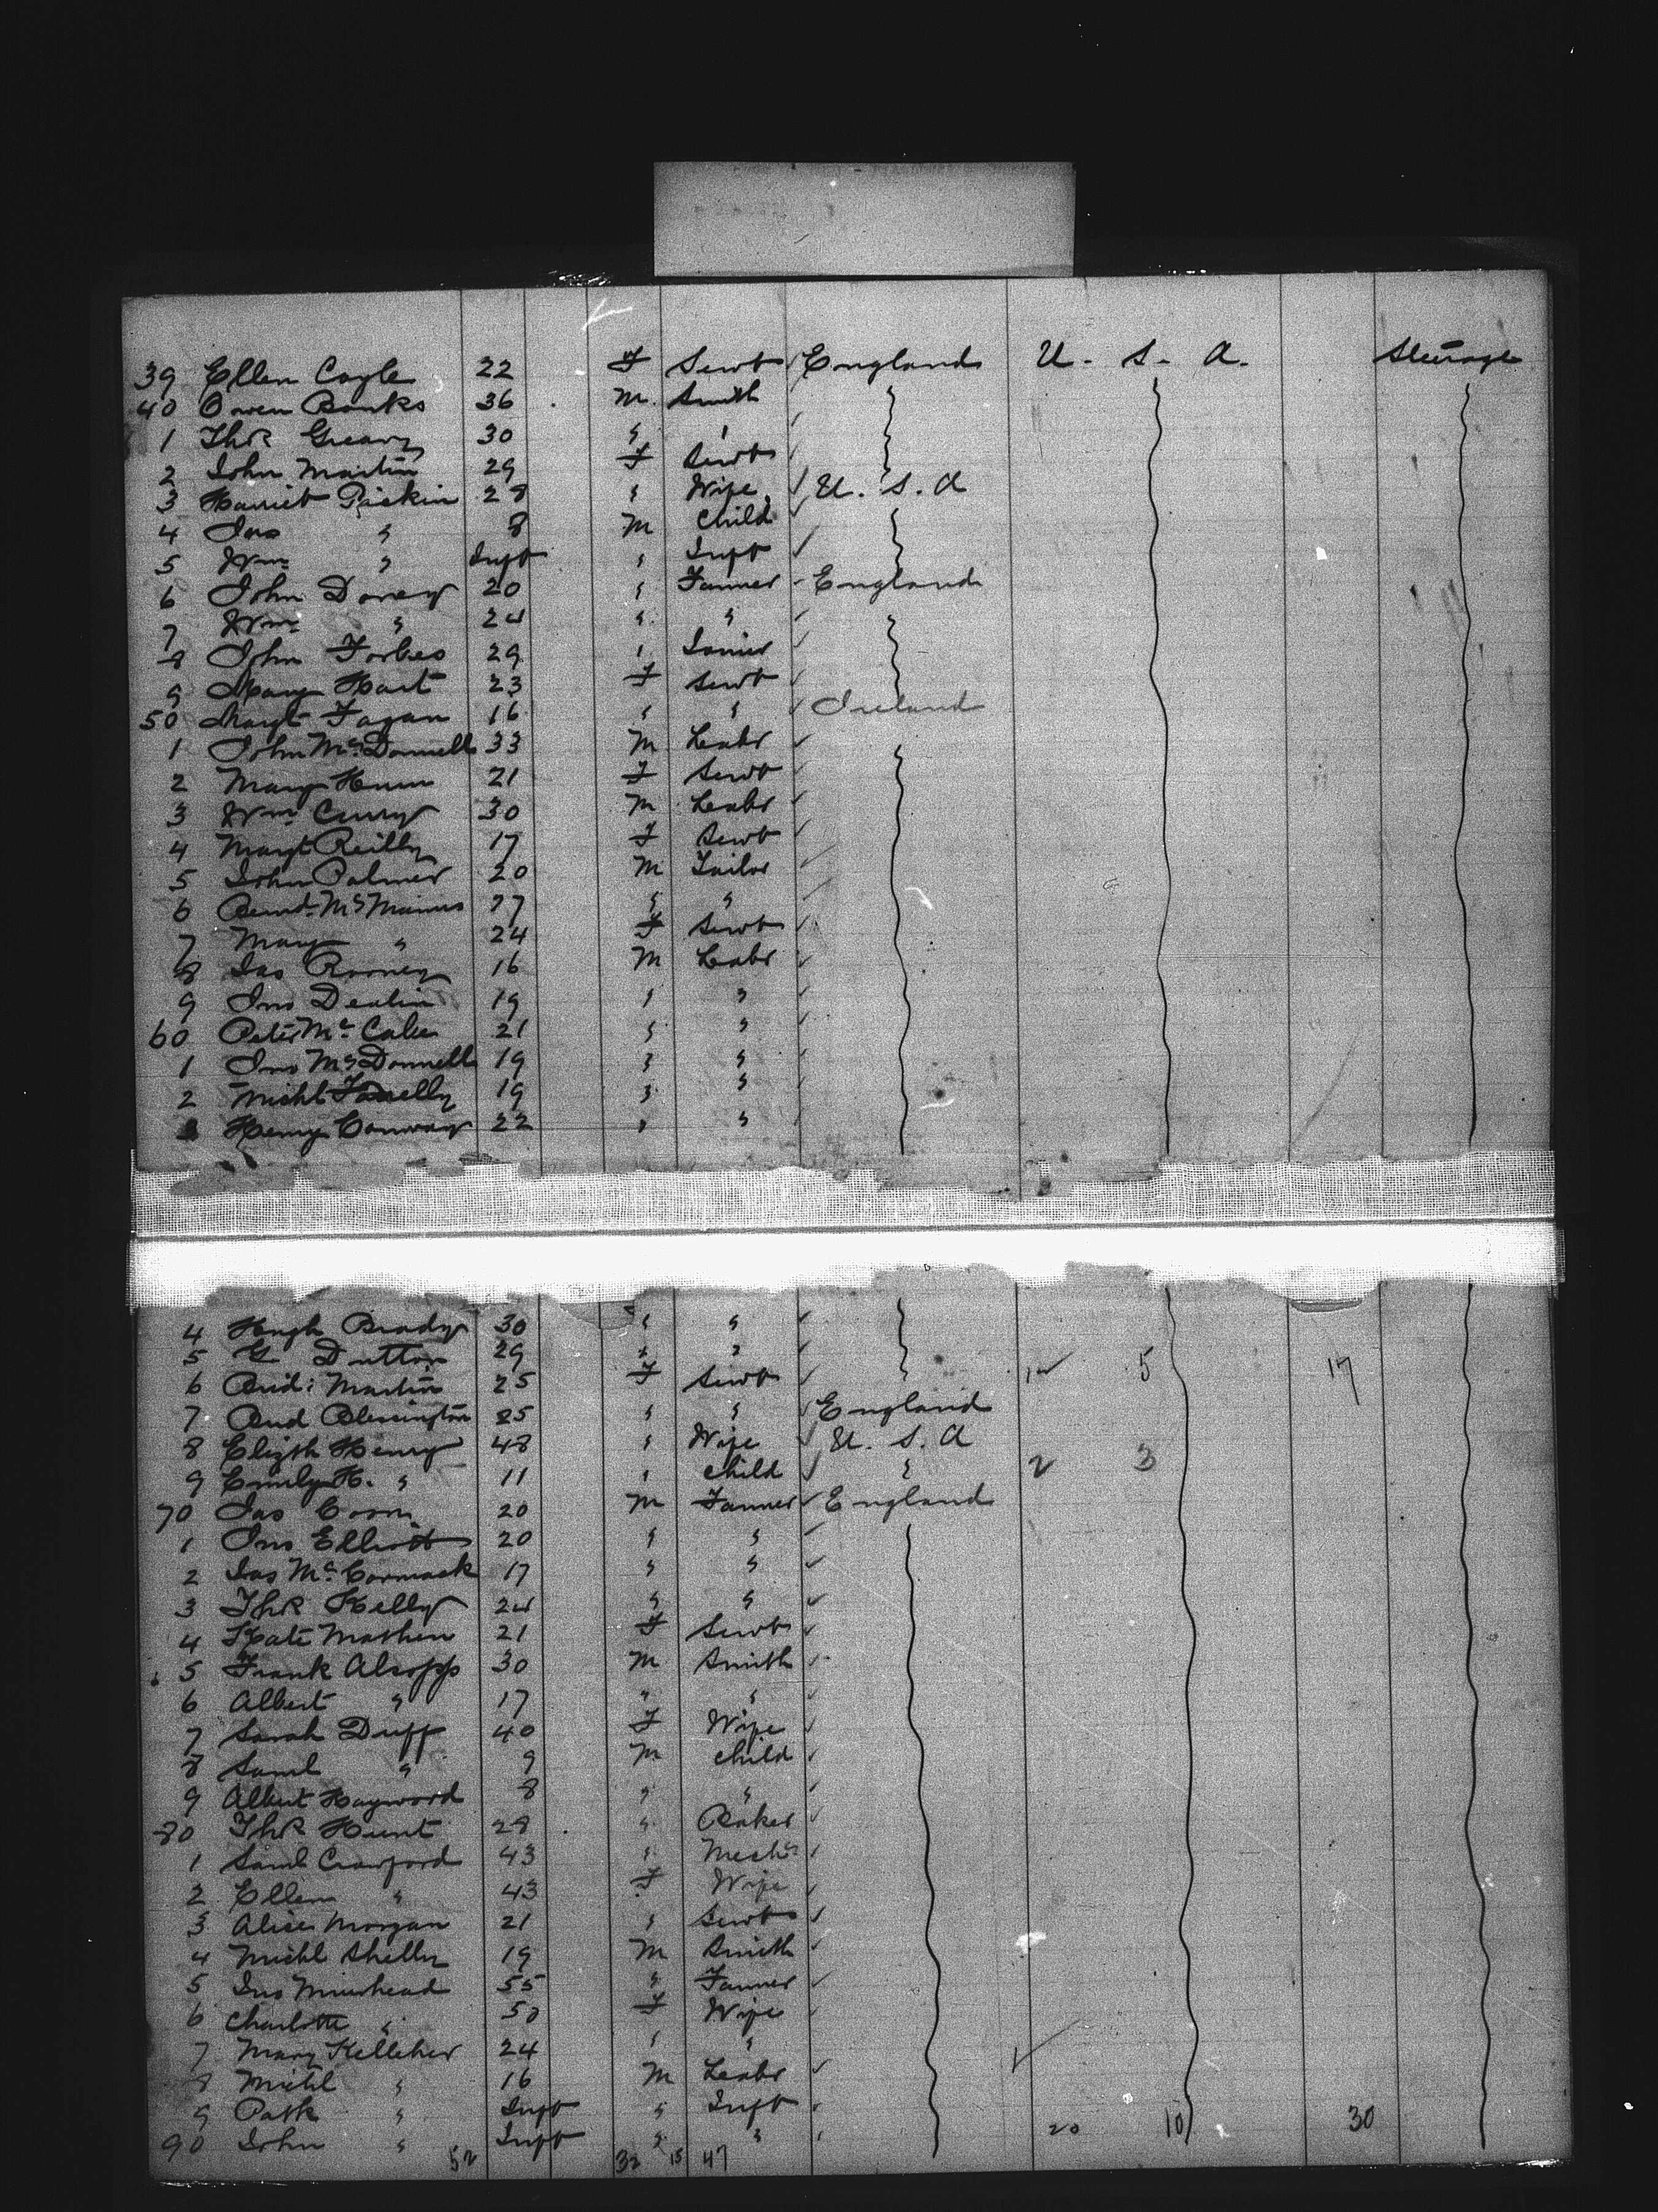 39 Ellen Coyle 22 F Servt England U. S. A. Steerage
40 Owen Banks 36 M. Smith
1 Thos Greary 30 " "
2 John Martin 29 F Servt
3 Harriet Piskin 28 " Wife U. S. A
4 Jno " 8 M Child
5 Wm " Inft " Inft
6 John Doney 20 " Farmer England
7 Wm " 24 " "
8 John Forbes 29 "
9 Mary Hart 23 F Servt
50 Margt Fagan 16 " " Ireland
1 John McDonnell 33 M Labr
2 Mary 21 F Servt
3 Wm Curry 30 M Labr
4 Margt Reilly 17 F Servt
5 John Palmer 20 M Tailor
6 Bernd McManus 27 " "
7 Mary " 24 F Servt
8 Jas Rooney 16 M Labr
9 Jno Devlin 19 " "
60 Peter McCabe 21 " "
1 Jno McDonnell 19 " "
2 Michl 19 " "
3 Henry Conway 22 " "
4 Hugh Brady 30 " "
5 G Dutton 29 " " 12 5 17
6 Brid: Martin 25 F Servt
7 Brid Blessington 25 " " England
8 Elizth Henry 48 " Wife U. S. A
9 Emily H. " 11 " Child " 2 3
70 Jas Coom 20 M Farmer England
1 Jno Elliott 20 " "
2 Jas McCormack 17 " "
3 Thos Kelly 24 " "
4 Kate Mathew 21 F Servt
5 Frank Alsopp 30 M Smith
6 Albert " 17 " "
7 Sarah Duff 40 F Wife
8 Saml " 9 M Child
9 Albert Hayword 8 " "
80 Thos Hunt 28 " Baker
1 Saml Crawford 43 " Mechc
2 Ellen " 43 F Wife
3 Alice Morgan 21 " Servt
4 Michl Shelly 19 M Smith
5 Jno Muirhead 55 " Farmer
6 Charlotte " 50 F Wife
7 Mary Kelleher 24 " "
8 Michl " 16 M Labr
9 Patk " Inft " Inft
90 John " Inft " " 20 10 30
52 32 15 47